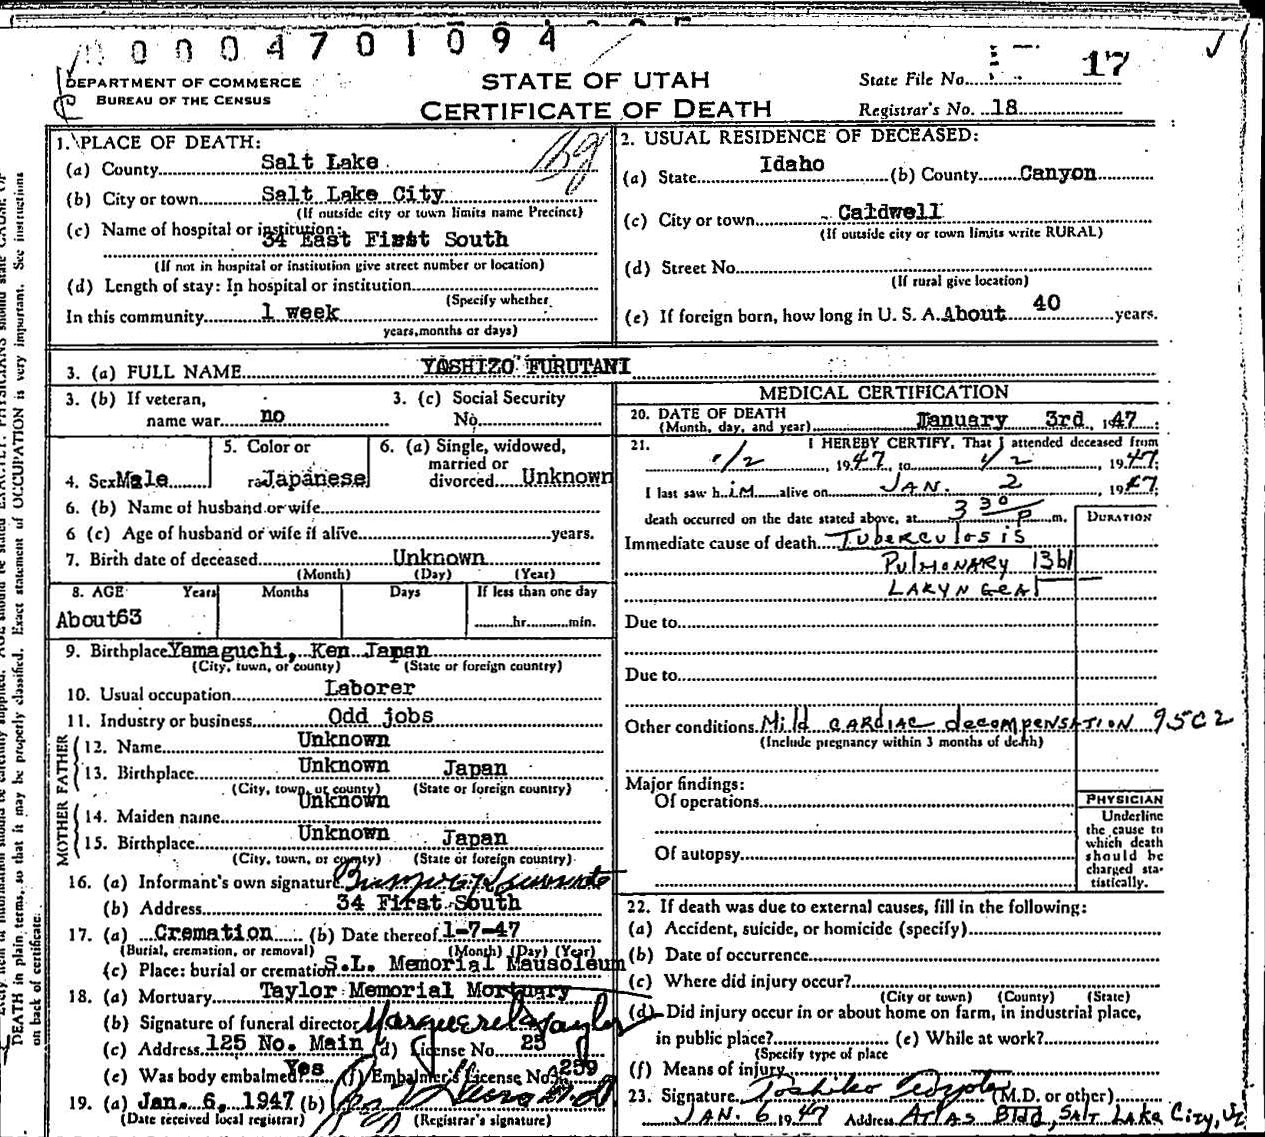 0 0 0 4 7 0 1 0 9 4
DEPARTMENT OF COMMERCE
BUREAU OF THE CENSUS
STATE OF UTAH
CERTIFICATE OF DEATH
State File No. 17
Registrar's No. 18
1. PLACE OF DEATH:
(a) County Salt Lake
(b) City or town Salt Lake City
(If outside city or town limits name Precinct)
(c) Name of hospital or institution:
34 East First South
(If not in hospital or institution give street number or location)
(d) Length of stay: In hospital or institution
(Specify whether
In this community 1 week
years, months or days)
2. USUAL RESIDENCE OF DECEASED:
(a) State Idaho (b) County Canyon
(c) City or town Caldwell
(If outside city or town limits write RURAL)
(d) Street No.
(If rural give location)
(e) If foreign born, how long in U. S. A. About 40 years.
3. (a) FULL NAME YOSHIZO FURUTANI
3. (b) If veteran,
name war no
3. (c) Social Security
No.
4. Sex Male
5. Color or
race Japanese
6. (a) Single, widowed,
married or
divorced Unknown
6. (b) Name of husband or wife
6 (c) Age of husband or wife if alive years.
7. Birth date of deceased Unknown
(Month) (Day) (Year)
8. AGE Years Months Days If less than one day
About 63 hr. min.
9. Birthplace Yamaguchi, Ken Japan
(City, town, or county) (State or foreign country)
10. Usual occupation Laborer
11. Industry or business Odd jobs
FATHER
12. Name Unknown
13. Birthplace Unknown Japan
(City, town, or county) (State or foreign country)
MOTHER
14. Maiden name Unknown
15. Birthplace Unknown Japan
(City, town, or county) (State or foreign country)
16. (a) Informant's own signature
(b) Address 34 First South
17. (a) Cremation (b) Date thereof 1-7-47
(Burial, cremation, or removal) (Month) (Day) (Year)
(c) Place: burial or cremation S.L. Memorial Mausoleum
18. (a) Mortuary Taylor Memorial Mortuary
(b) Signature of funeral director Taylor
(c) Address 125 No. Main (d) License No. 23
(e) Was body embalmed? Yes (f) Embalmer's License No. 259
19. (a) Jan. 6, 1947 (b)
(Date received local registrar) (Registrar's signature)
MEDICAL CERTIFICATION
20. DATE OF DEATH
(Month, day, and year) January 3rd, 47
21. I HEREBY CERTIFY, That I attended deceased from
1/2, 1947, to 1/2, 1947.
I last saw him alive on JAN. 2, 1947
death occurred on the date stated above, at 3 30 P m.
DURATION
Immediate cause of death Tuberculosis
PULMONARY 13b1
LARYNGEAL
Due to
Due to
Other conditions Mild CARDIAC decompENSATION 95C2
(Include pregnancy within 3 months of death)
Major findings:
Of operations
Of autopsy
PHYSICIAN
Underline
the cause to
which death
should be
charged sta-
tistically.
22. If death was due to external causes, fill in the following:
(a) Accident, suicide, or homicide (specify)
(b) Date of occurrence
(c) Where did injury occur?
(City or town) (County) (State)
(d) Did injury occur in or about home on farm, in industrial place,
in public place? (e) While at work?
(Specify type of place
(f) Means of injury
23. Signature Toshiko (M.D. or other)
JAN. 6 1947 Address ATLAS Bldg, SALT LAKE CITY, Ut
DEATH in plain terms, so that it may be properly classified. Exact statement of OCCUPATION is very important. See instructions
on back of certificate.